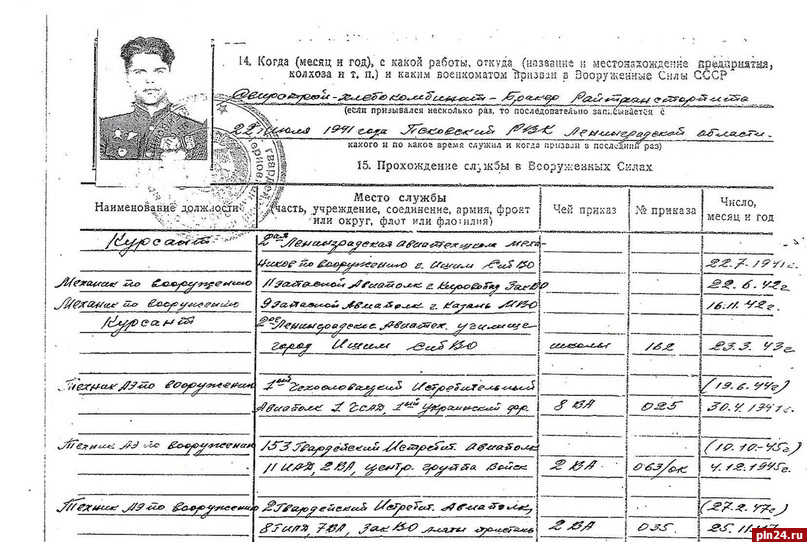 14. Когда (месяц и год), с какой работы, откуда (название и местонахождение предприятия,
колхоза и т. п.) и каким военкоматом призван в Вооруженные Силы СССР
Райтрансторгпита
(если призывался несколько раз, то последовательно записывается с
22 июля 1941 года Псковский РВК Ленинградской области.
какого и по какое время служил и когда призван в последний раз)
15. Прохождение службы в Вооруженных Силах
Наименование должности
Место службы
(часть, учреждение, соединение, армия, фронт
или округ, флот или флотилия)
Чей приказ
№ приказа
Число,
месяц и год
Курсант 2ая Ленинградская авиатехшкола меха-
ников по вооружению г. Ишим СибВО 22.7.1941г.
Механик по вооружению 11 Запасной Авиаполк г. Кировобад ЗакВО 22.6.42г
Механик по вооружению 9 Запасной Авиаполк г. Казань МВО 16.11.42г.
Курсант 2ое Ленинградское Авиатех. училище
город Ишим СибВО школы 162 23.3.43г
Техник АЭ по вооружению 1ый Чехословацкий Истребительный (19.6.44г)
Авиаполк 1 ЧСАД, 1ый Украинский фр. 8 ВА 025 30.4.1941г.
Техник АЭ по вооружению 153 Гвардейский Истребит. Авиаполк (10.10-45г)
11 ИАД, 2ВА, центр. группа Войск 2 ВА 063/ок 4.12.1945г.
Техник АЭ по вооружению 2 Гвардейский Истребит. Авиаполк, (27.2.47г)
7ВА, ЗакВО 2 ВА 035.
pln24.ru